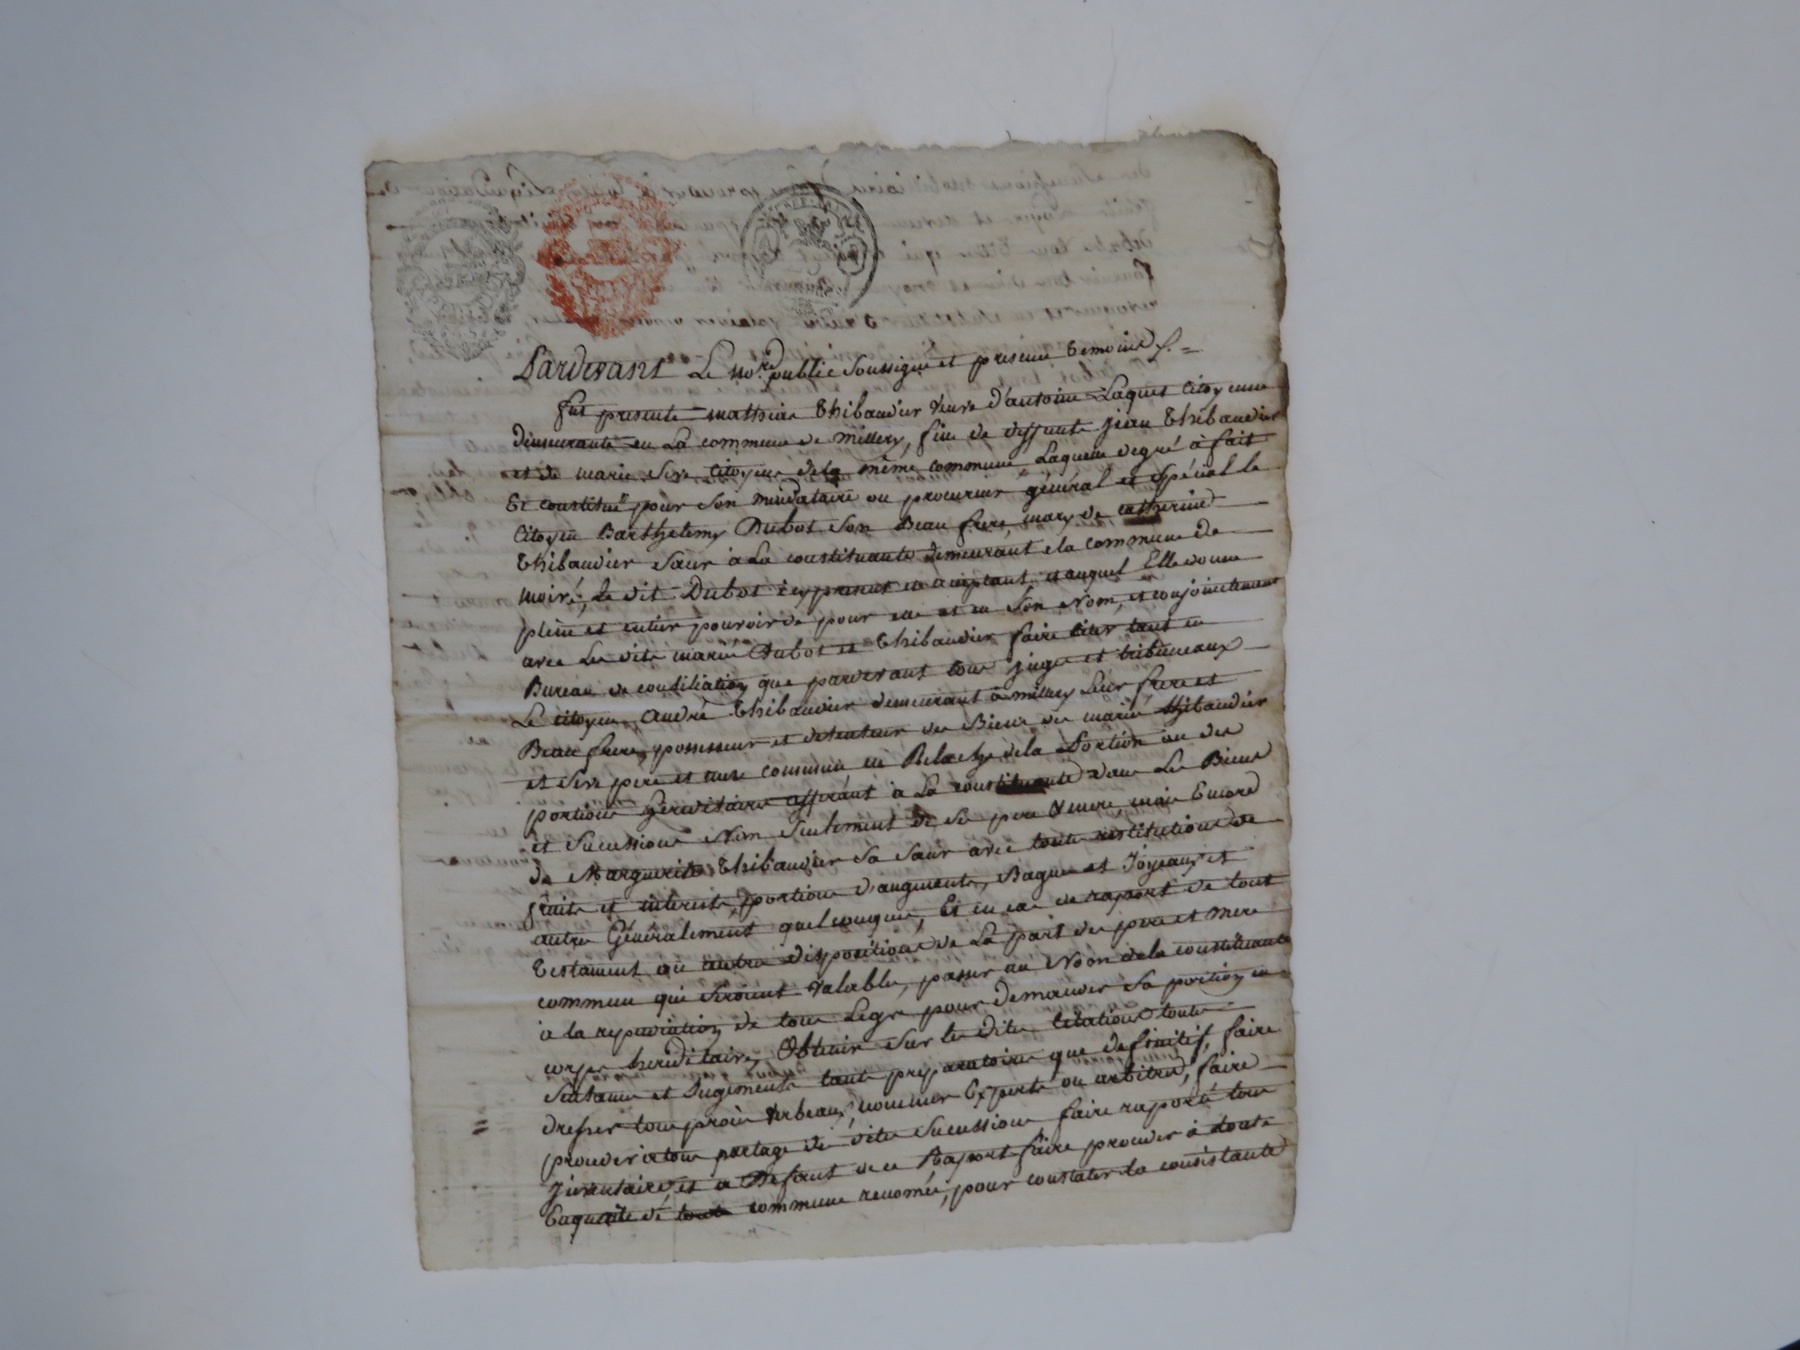 Pardevant Le no.re public Soussigné et presence temoins /. =
fut presente mathiae Thibaudier veuve d'antoine Laquet Citoyenne
demeurante en La commune de millery, fille de deffunte jean Thibaudier
et de marie Sive citoyens de la même commune, Laquelle degré à fait
Et constitué pour son mandataire ou procureur général et spécial le
Citoyen Barthelemy Dubot son Beau frere, mary de catherine
Thibaudier sœur à La constituante demeurant ela commune de
moiré, le dit Dubot icy present et aceptant, auquel Elle donne
plein et entier pouvoir de pour elle et en son Nom, et conjointement
avec Les dits mariés Dubot et Thibaudier faire citer tant en
Bureau de consiliation que pardevant tous juges et tribuneaux
Le citoyen André Thibaudier demeurant à millery Leur frere et
Beau frere, possesseur et detenteur des Biens des mariés thibaudier
et Sive pere et mere communs en Relache de la Portion ou des
portions héréditaires afférant à La constituante dans Les Biens
et Sucessions Non Seulement de Se pere & mere, mais Encore
de Marguerite Thibaudier Sa Sœur avec toutes restitutions de
fruits et interests, portions d'augments, Bagues et Joyeaux et
autres Généralement quelconques, Et en cas de raport de tout
testament ou autres dispositions de La part des pere et mere
communs qui seroient valables, passer au Nom de la constituante
à la repudiation de tous Legs pour demander Sa portion en
corps héréditaires, Obtenir sur les dites citations toutes
Sentances et Jugements tant preparatoires que definitifs, faire
dresser tous procès verbeaux, nommer Experts ou arbitres, faire
proceder à tous partage des dites Sucessions faire raporté tous
Jnventaires, et a Defaut de ce Raport faire proceder à toute
Enquete de toute commune renomée, pour constater la consistante